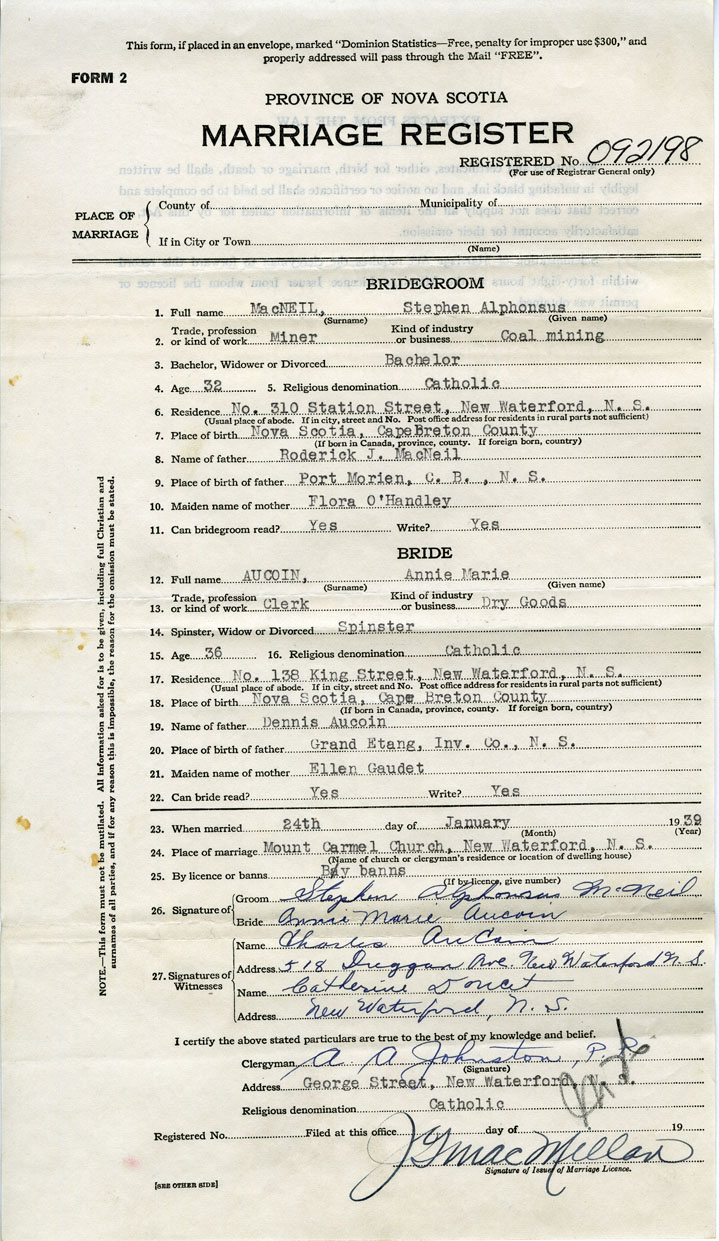 This form, if placed in an envelope, marked "Dominion Statistics—Free, penalty for improper use $300," and
properly addressed will pass through the Mail "FREE".
FORM 2
PROVINCE OF NOVA SCOTIA
MARRIAGE REGISTER
REGISTERED No. 092198
(For use of Registrar General only)
PLACE OF MARRIAGE
County of Municipality of
If in City or Town
(Name)
BRIDEGROOM
1. Full name MacNEIL, Stephen Alphonsus
(Surname) (Given name)
2. Trade, profession or kind of work Miner Kind of industry or business Coal mining
3. Bachelor, Widower or Divorced Bachelor
4. Age 32 5. Religious denomination Catholic
6. Residence No. 310 Station Street, New Waterford, N. S.
(Usual place of abode. If in city, street and No. Post office address for residents in rural parts not sufficient)
7. Place of birth Nova Scotia, CapeBreton County
(If born in Canada, province, county. If foreign born, country)
8. Name of father Roderick J. MacNeil
9. Place of birth of father Port Morien, C. B. , N. S.
10. Maiden name of mother Flora O'Handley
11. Can bridegroom read? Yes Write? Yes
BRIDE
12. Full name AUCOIN, Annie Marie
(Surname) (Given name)
13. Trade, profession or kind of work Clerk Kind of industry or business Dry Goods
14. Spinster, Widow or Divorced Spinster
15. Age 36 16. Religious denomination Catholic
17. Residence No. 138 King Street, New Waterford, N. S.
(Usual place of abode. If in city, street and No. Post office address for residents in rural parts not sufficient)
18. Place of birth Nova Scotia, Cape Breton County
(If born in Canada, province, county. If foreign born, country)
19. Name of father Dennis Aucoin
20. Place of birth of father Grand Etang, Inv. Co., N. S.
21. Maiden name of mother Ellen Gaudet
22. Can bride read? Yes Write? Yes
23. When married 24th day of January 1939
(Month) (Year)
24. Place of marriage Mount Carmel Church, New Waterford, N. S.
(Name of church or clergyman's residence or location of dwelling house)
25. By licence or banns By banns
(If by licence, give number)
26. Signature of
Groom Stephen Alphonsus McNeil
Bride Annie Marie Aucoin
27. Signatures of Witnesses
Name Charles AuCoin
Address 518 Duggan Ave. New Waterford N. S.
Name Catherine Doucet
Address New Waterford, N. S.
I certify the above stated particulars are true to the best of my knowledge and belief.
Clergyman A. A. Johnston, P. P.
(Signature)
Address George Street, New Waterford, N. S.
Religious denomination Catholic
Registered No. Filed at this office day of 19
J G MacMillan
Signature of Issuer of Marriage Licence.
[SEE OTHER SIDE]
NOTE.—This form must not be mutilated. All Information asked for is to be given, including full Christian and
surnames of all parties, and if for any reason this is impossible, the reason for the omission must be stated.